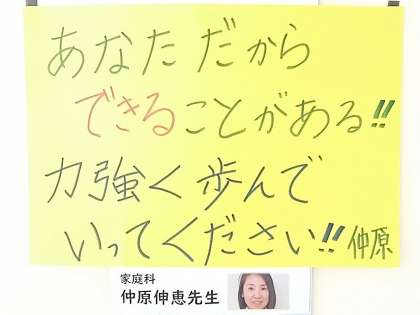 あなただから
できることがある!!
力強く歩んで
いってください!! 仲原
家庭科
仲原伸恵先生